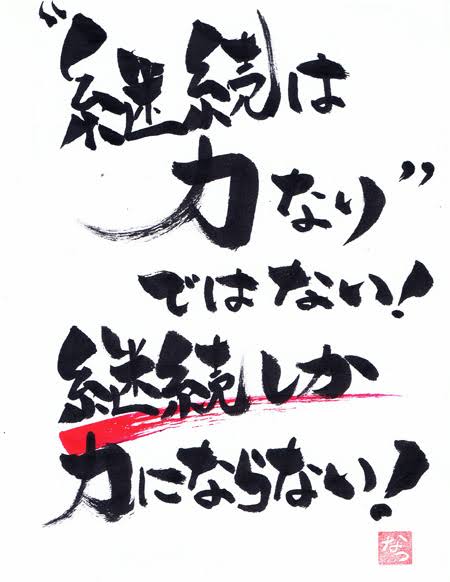 “継続は
力なり”
ではない!
継続しか
力にならない!
なつ